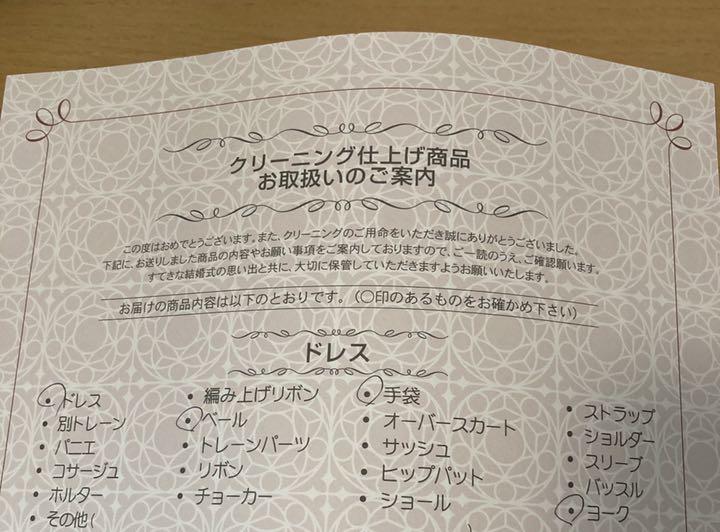 クリーニング仕上げ商品
お取扱いのご案内
この度はおめでとうございます。また、クリーニングのご用命をいただき誠にありがとうございました。
下記に、お送りしました商品の内容やお願い事項をご案内しておりますので、ご一読のうえ、ご確認願います。
すてきな結婚式の思い出と共に、大切に保管していただきますようお願いいたします。
お届けの商品内容は以下のとおりです。(〇印のあるものをお確かめ下さい)
ドレス
・ドレス
・別トレーン
・パニエ
・コサージュ
・ホルター
・その他(
・編み上げリボン
・ベール
・トレーンパーツ
・リボン
・チョーカー
・手袋
・オーバースカート
・サッシュ
・ヒップパット
・ショール
)
・ストラップ
・ショルダー
・スリーブ
・バッスル
・ヨーク